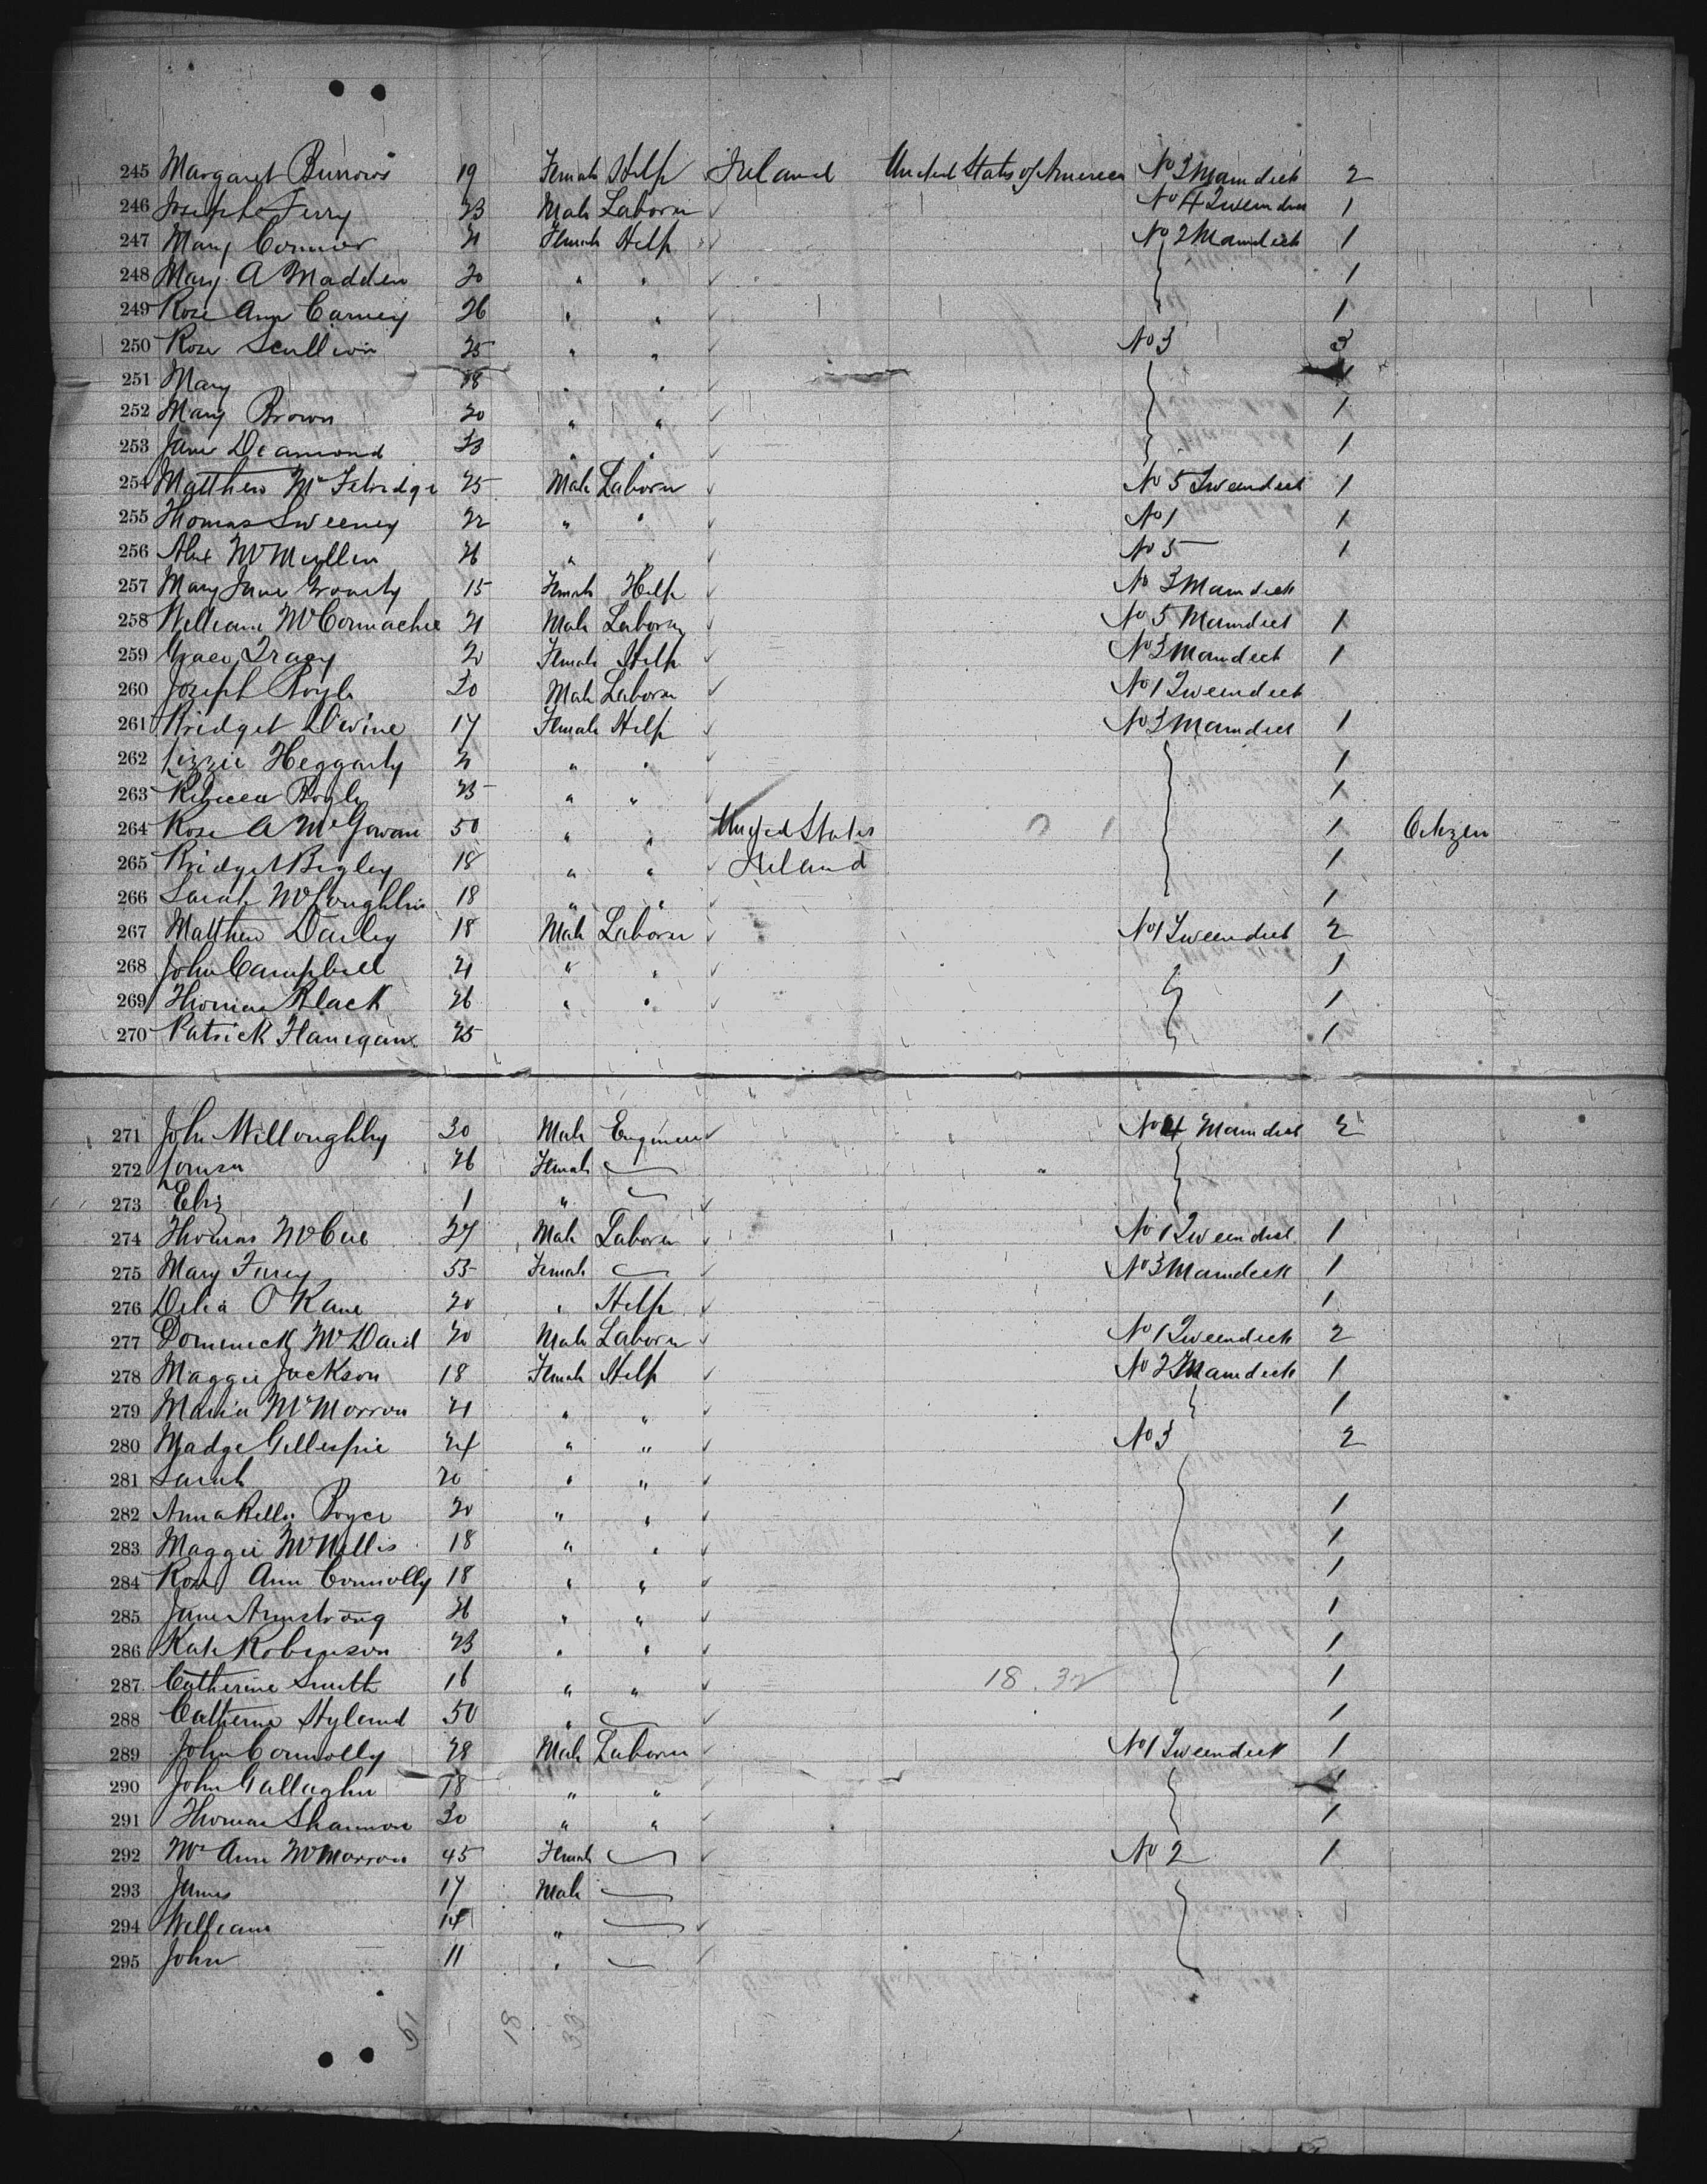 245 Margaret Burrows 19 Female Help Ireland United States of America No 3 Maindeck 2
246 Joseph Ferry 23 Male Laborer No 4 Tweendeck 1
247 Mary Connor 21 Female Help No 2 Maindeck 1
248 Mary A Madden 20 " " 1
249 Rose Ann Carney 26 " " 1
250 Rose Scullion 25 " " No 3 3
251 Mary 18 " " 1
252 Mary Brown 20 " " 1
253 Jane Deamond " " 1
254 Matthew McFetridge 25 Male Laborer No 5 Tweendeck 1
255 Thomas Sweeney 22 " " No 1 1
256 Alex McMullen 26 " " No 5 1
257 Mary Jane 15 Female Help No 3 Maindeck
258 William McConnachie 21 Male Laborer No 5 Maindeck 1
259 Grace Tracy 20 Female Help No 3 Maindeck 1
260 Joseph Boyle 30 Male Laborer No 1 Tweendeck
261 Bridget Devine 17 Female Help No 3 Maindeck 1
262 Lizzie Heggarty " " 1
263 Rebecca Boyle 23 " " 1
264 Rose A McGowan 50 " " United States 1 Citizen
265 Bridget Begley 18 " " Ireland 1
266 Sarah McLoughlin 18 " " 1
267 Matthew Darley 18 Male Laborer No 1 Tweendeck 2
268 John Campbell 21 " " 1
269 Thomas Black 26 " " 1
270 Patrick Flanegan 25 1
271 John Willoughby 30 Male Engineer No 4 Maindeck 2
272 Louisa 26 Female
273 Eliz 1 "
274 Thomas McCue 27 Male Laborer No 1 Tweendeck 1
275 Mary Furey 55 Female No 3 Maindeck 1
276 Delia O Kane 20 " Help 1
277 Dominick McDaid 20 Male Laborer No 1 Tweendeck 2
278 Maggie Jackson 18 Female Help No 2 Maindeck 1
279 Maria McMorrow 21 " " 1
280 Madge Gillespie 24 " " No 3 2
281 Sarah 20 " "
282 Annabella Boyce 20 " " 1
283 Maggie McNellis 18 " " 1
284 Rose Ann Connolly 18 " " 1
285 Jane Armstrong 26 " " 1
286 Kate Robinson 23 " " 1
287 Catherine Smith 16 " " 18.32 1
288 Catherine Hyland 50 " 1
289 John Connolly 28 Male Laborer No 1 Tweendeck 1
290 John Gallagher 18 " " 1
291 Thomas Shannon 30 " " 1
292 Mrs Ann McMorrow 45 Female No 2 1
293 James 17 Male
294 William 14 "
295 John 11 "
18 33